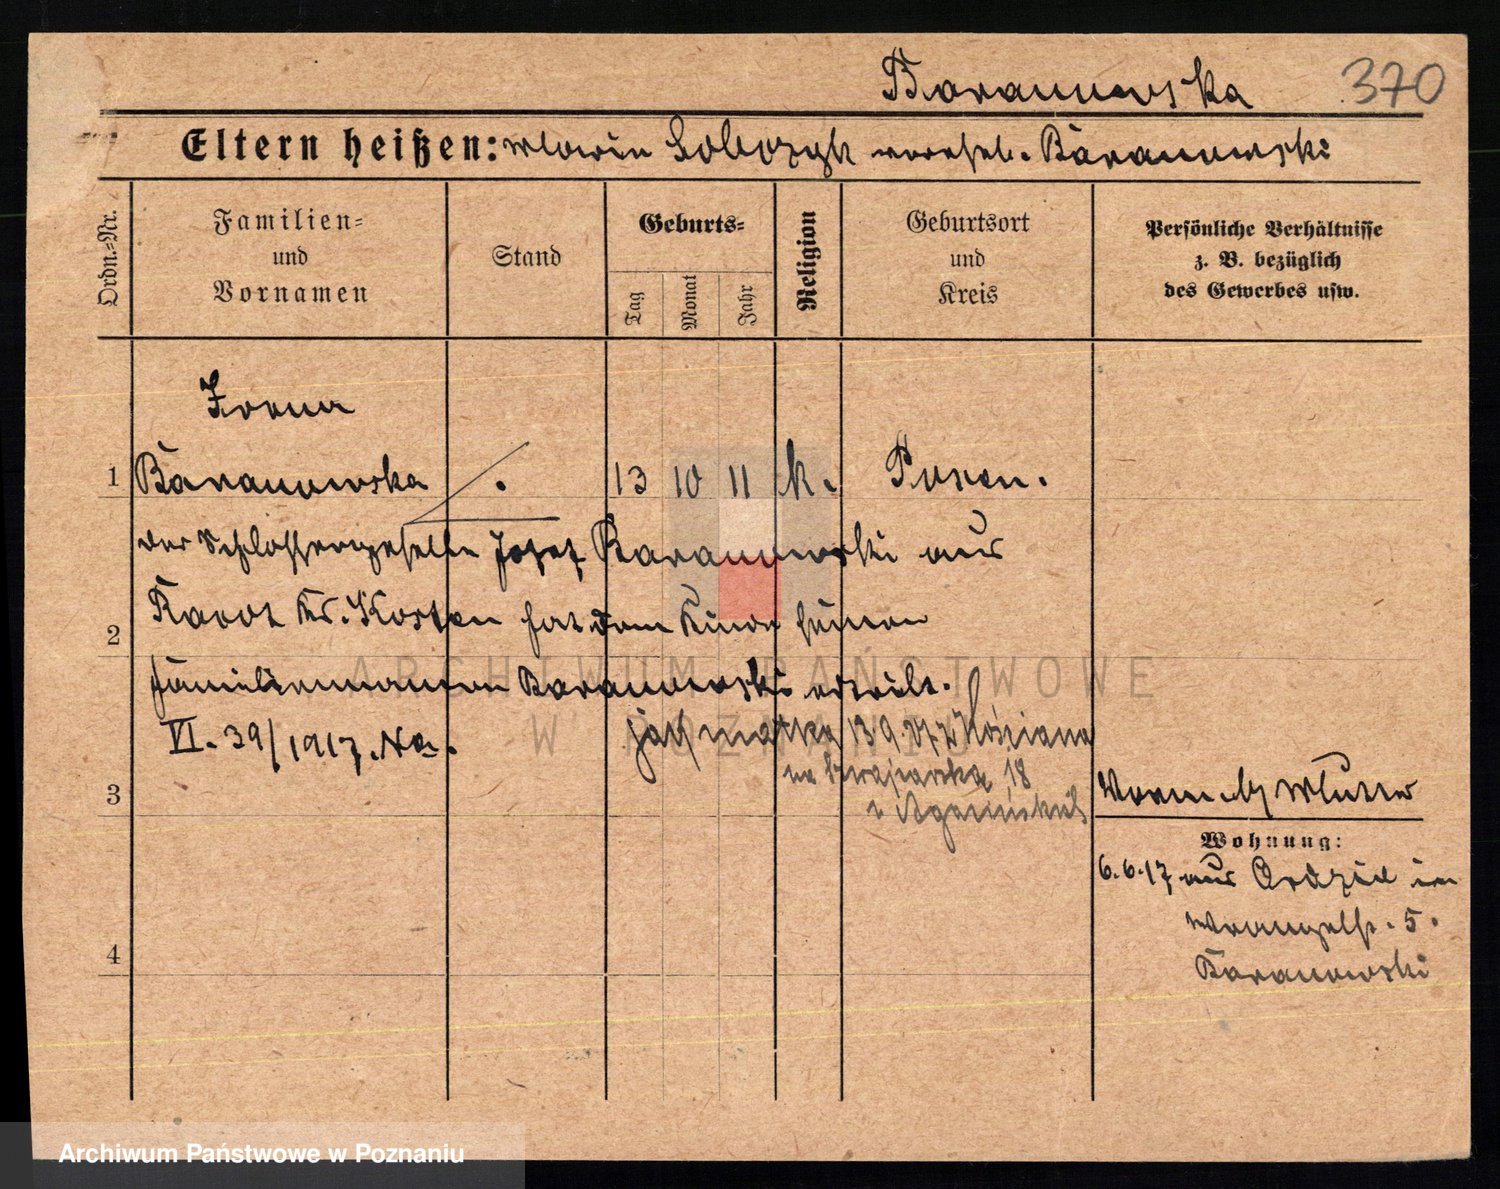 Baranowska 370
Eltern heißen: Maria Sobczyk vereh. Baranowski
Ordn.=Nr.
Familien=
und
Vornamen
Stand
Geburts=
Tag
Monat
Jahr
Religion
Geburtsort
und
Kreis
Persönliche Verhältnisse
z. B. bezüglich
des Gewerbes usw.
1 Baranowska 13 10 11 k. Posen.
der Schlossergeselle Josef Baranowski aus
Kr. Kosten hat dem Kinde seinen
2
Familiennamen Baranowski erteilt.
VI. 39/1917. jak matka 13 9 z Kościana
18
3
Mutter
Wohnung:
6.6.17 aus in
Wrangelst. 5.
4
Baranowski
ARCHIWUM PAŃSTWOWE
W POZNANIU
Archiwum Państwowe w Poznaniu